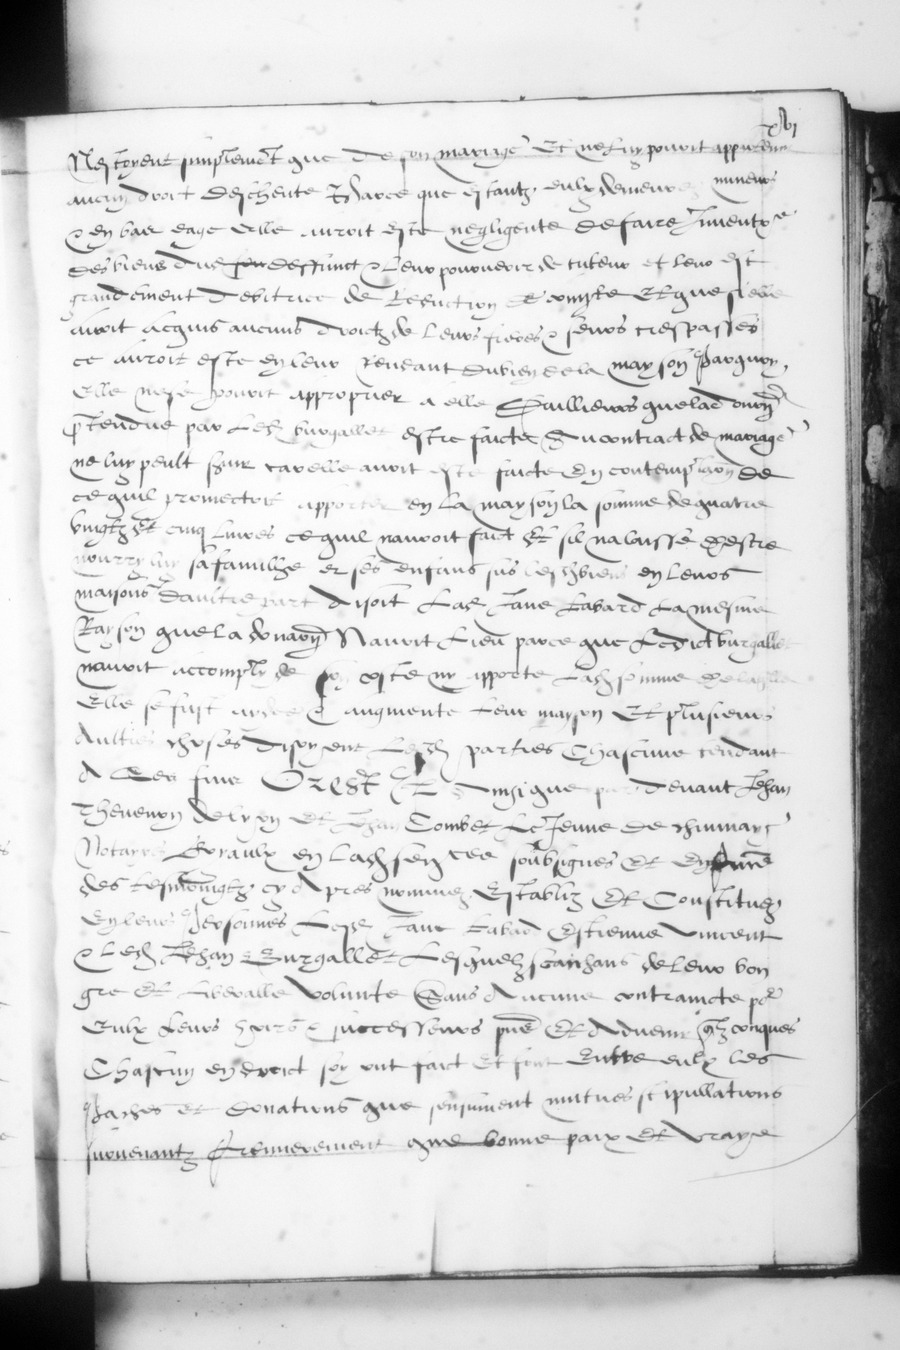 xvi
Nestoyent simplement que de son mariage Et ne luy pouvoit appartenir
aucun droit deschente Parce que estantz eulx demeurez mineurs
& en bas eage elle auroit este negligente de faire Inventre
des biens dud deffunct & leur pourveoir de tuteur et leur est
grandement debitrice de reduction de compte Et que si elle
avoit acquis aucuns droictz de leurs freres & seurs trespasses
ce auroit este en leur rendant du bien de la mayson Parquoy
elle ne se pouvoit approprier a elle Dailleurs que la donaon
ptendue par led burgallet estre faicte Du contract de mariage
ne luy peult servir car elle avoit este faicte En contemplaon de
ce quil promectoit apporter en la mayson la somme de quatre
vingtz Et cinq livres ce quil nauroit faict Et sil na laisse destre
nourry luy sa famille et ses enfans sus lesd biens en leurs
maysons Daultre part disoit lad Jane Labard la mesme
Rayson que la donaon Navoit lieu parce que ledict burgallet
navoit accomply de son coste ny apporte lad somme de laquelle
Elle se fust aydee & augmente leur mayson Et plusieurs
Aultres choses disoyent lesd parties Chascune tendant
A ses fins Or est Il Ainsi que par devant Jehan
Thevenon de lyon Et Jehan Combet le Jeune de
Notayres Royaulx en lad sen cee soubsignes Et En pnce
des tesmoingtz cy Apres nommez Establiz Et Constituez
En leurs Personnes lad Jane Labard Estienne Vincent
& led Jehan Burgallet Lesquelz scaichans de leur bon
gre Et liberalle volunte Sans Aucune contraincte pr
Eulx leurs hoirs & successeurs pns Et Advenir qlzconques
Chascun endroict soy ont faict Et font Entre eulx les
Pactes et donations que sensuivent mutues stipullations
survenantz Premierement que bonne paix Et Vraye